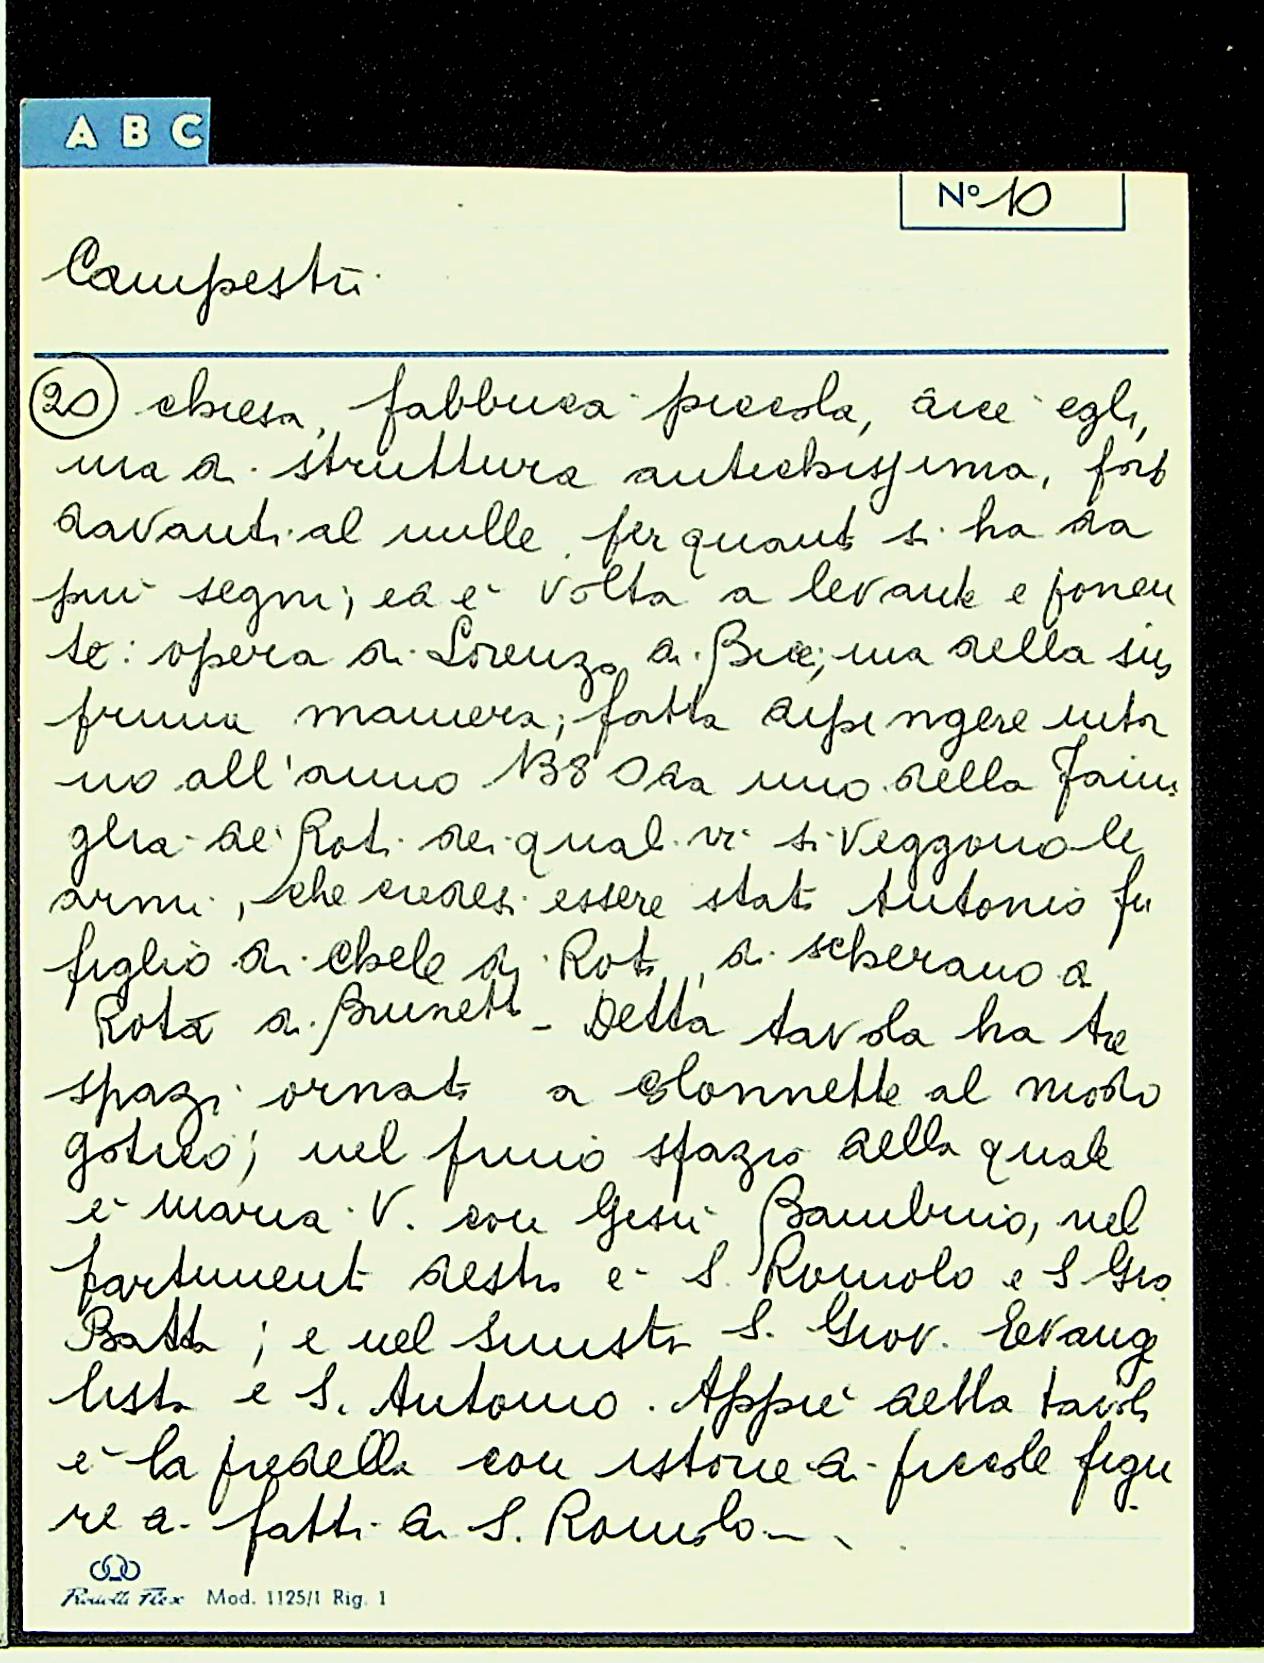 A B C
Nº 10
Campestri
20 chiesa, fabbrica piccola, dice egli,
ma di struttura antichissima, forse
davanti al mille per quanto si ha da
più segni; ed è volta a levante e ponen
te: opera di Lorenzo di Bicci; ma della sua
prima maniera; fatta dipingere intor
no all'anno 1380 da uno della Fami
glia de' Roti dei quali vi si veggono le
armi, che credesi essere stato Antonio fu
figlio di Chele di Roti, di Scherano di
Rota di Brunetto - Detta tavola ha tre
spazi ornati a colonnette al modo
gotico; nel primo spazio della quale
è Maria V. con Gesù Bambino, nel
partimento destro è S. Romolo e S Gio
Batta; e nel sinistro S. Giov. Evange
lista e S. Antonio. Appiè della tavola
è la predella con istorie di piccole figu
re di fatti di S. Romolo
Mod. 1125/1 Rig. 1